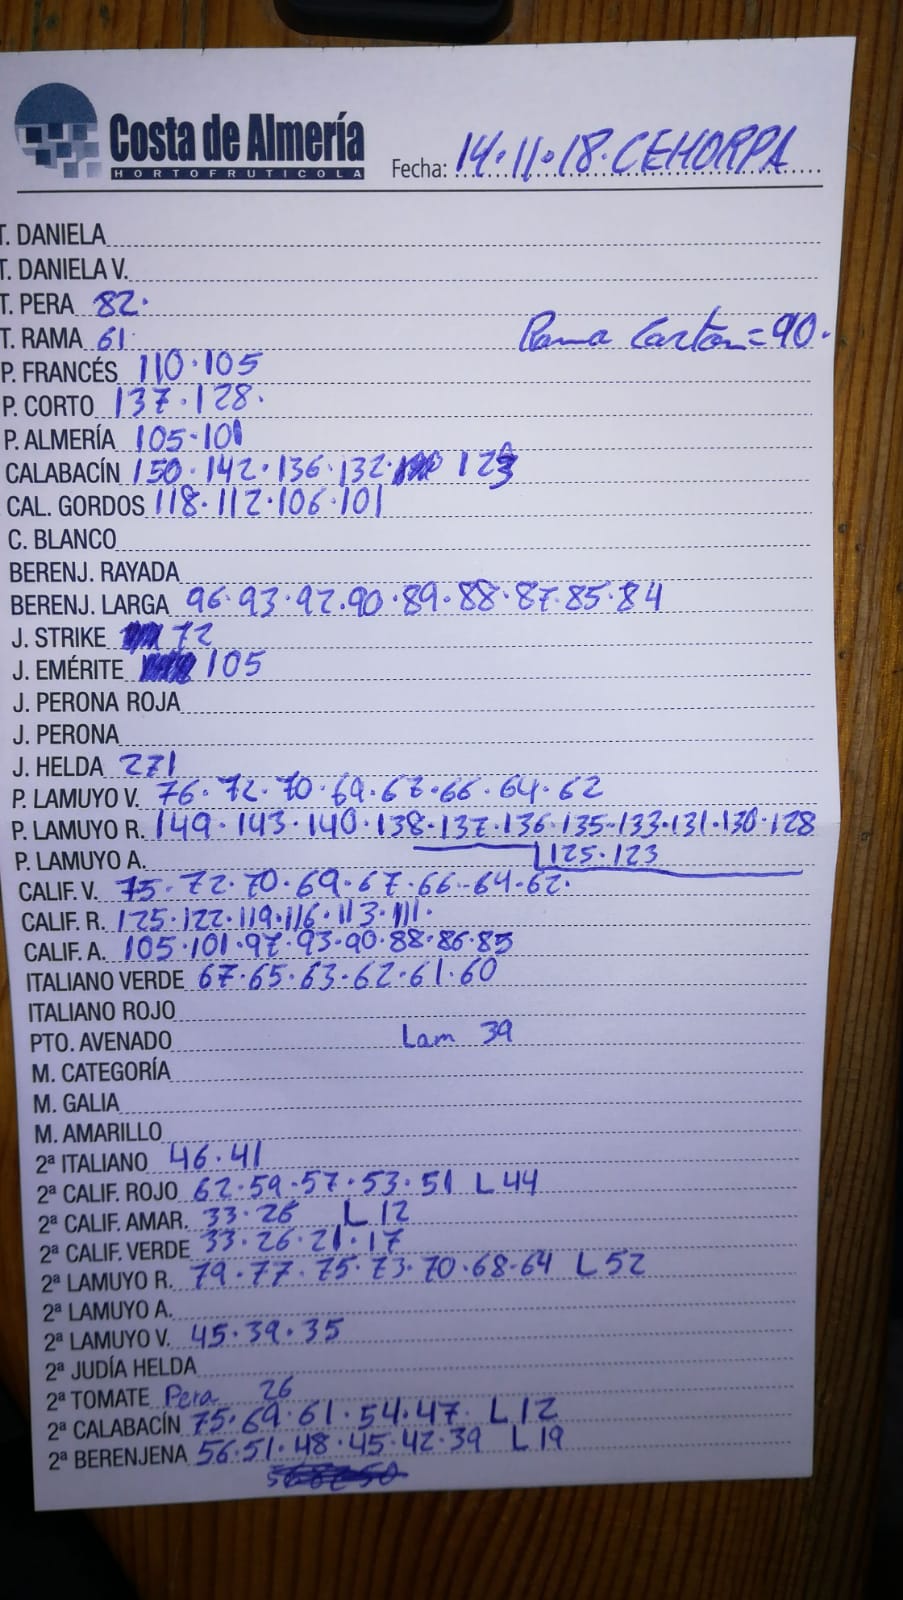 Costa de Almería
HORTOFRUTICOLA
Fecha: 14·11·18·CEHORPA
T. DANIELA
T. DANIELA V.
T. PERA 82·
T. RAMA 61· Rama Carton=90·
P. FRANCÉS 110·105
P. CORTO 137·128·
P. ALMERÍA 105·101
CALABACÍN 150·142·136·132· 123
CAL. GORDOS 118·112·106·101
C. BLANCO
BERENJ. RAYADA
BERENJ. LARGA 96·93·92·90·89·88·87·85·84
J. STRIKE 72
J. EMÉRITE 105
J. PERONA ROJA
J. PERONA
J. HELDA 271
P. LAMUYO V. 76·72·70·69·67·66·64·62
P. LAMUYO R. 149·143·140·138·137·136·135·133·131·130·128
P. LAMUYO A. 125·123
CALIF. V. 75·72·70·69·67·66·64·62·
CALIF. R. 125·122·119·116·113·111·
CALIF. A. 105·101·97·93·90·88·86·85
ITALIANO VERDE 67·65·63·62·61·60
ITALIANO ROJO
PTO. AVENADO Lam 39
M. CATEGORÍA
M. GALIA
M. AMARILLO
2ª ITALIANO 46·41
2ª CALIF. ROJO 62·59·57·53·51 L 44
2ª CALIF. AMAR. 33·26 L 12
2ª CALIF. VERDE 33·26·21·17
2ª LAMUYO R. 79·77·75·73·70·68·64 L 52
2ª LAMUYO A.
2ª LAMUYO V. 45·39·35
2ª JUDÍA HELDA
2ª TOMATE Pera 26
2ª CALABACÍN 75·69·61·54·47· L 12
2ª BERENJENA 56·51·48·45·42·39 L 19